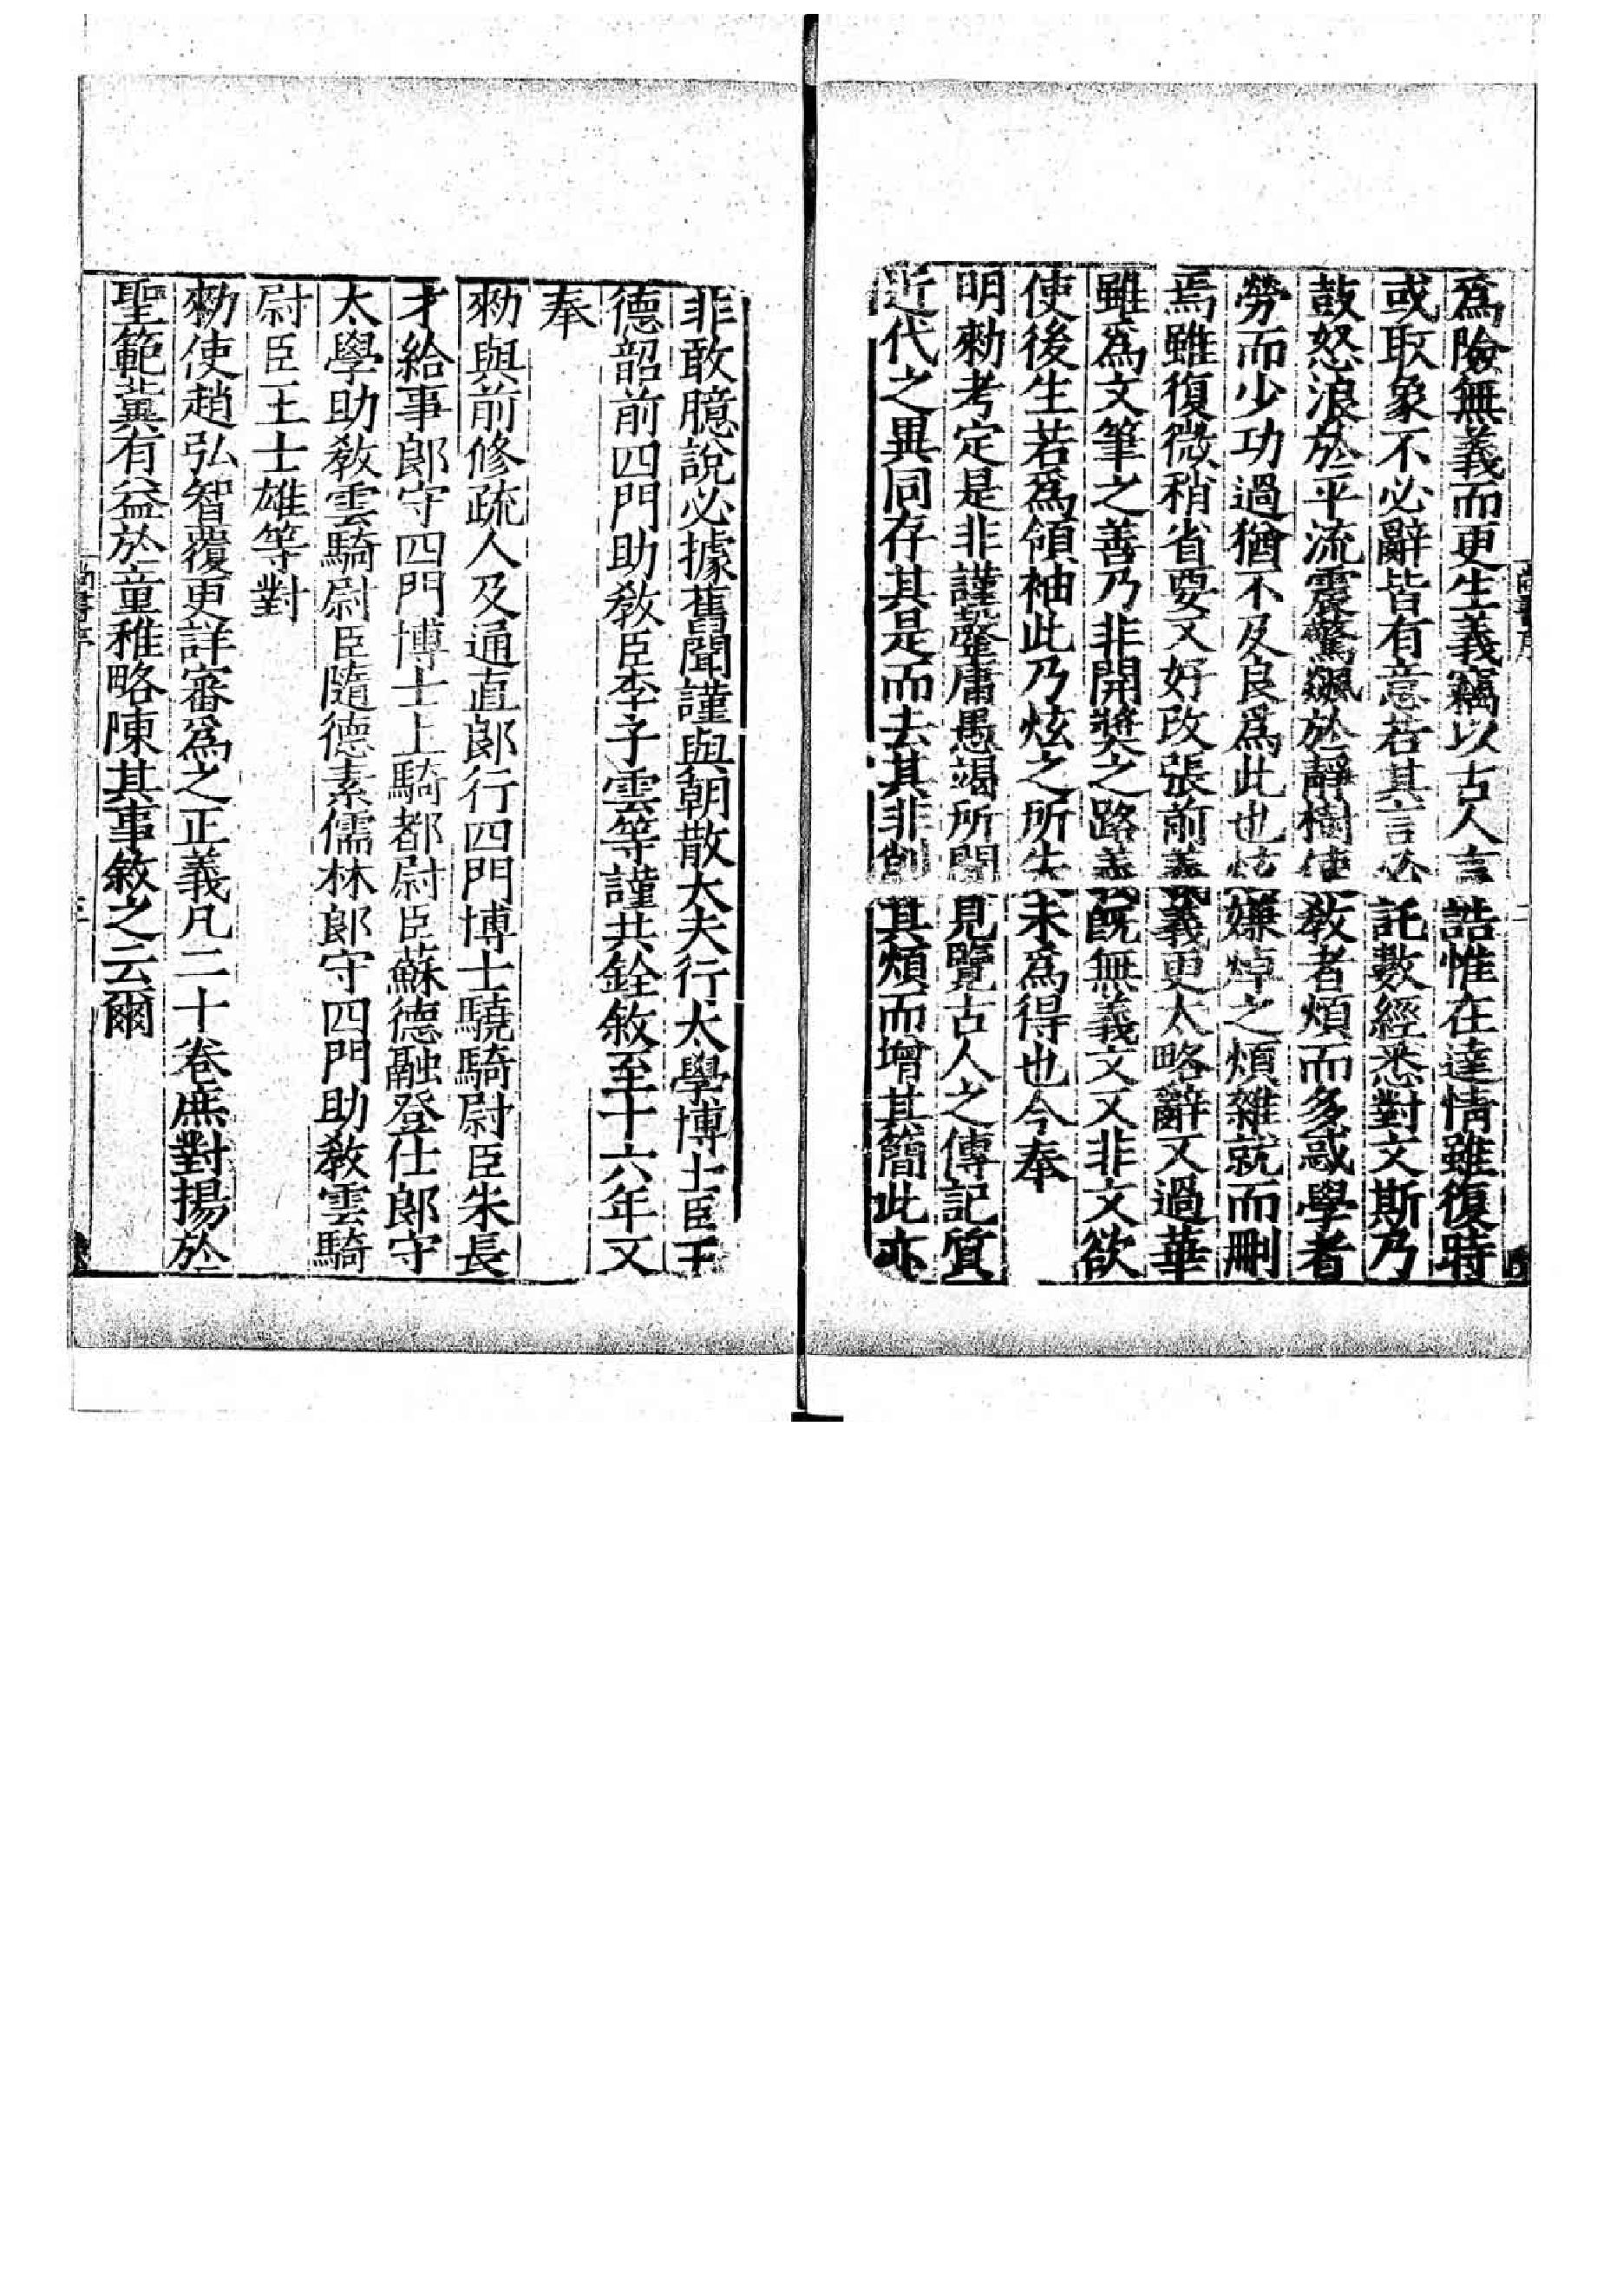 爲險無義而更生義竊以古人言誥惟在達情雖復時
或取象不必辭皆有意若其言必託數經悉對文斯乃
鼓怒浪於平流震驚飆於靜樹使敎者煩而多惑學者
勞而少功過猶不及良爲此也炫嫌焯之煩雜就而刪
焉雖復微稍省要又好改張前義義更太略辭又過華
雖爲文筆之善乃非開奬之路義旣無義文又非文欲
使後生若爲領袖此乃炫之所失未爲得也今奉
明勑考定是非謹罄庸愚竭所聞見覽古人之傳記質
近代之異同存其是而去其非削其煩而增其簡此亦
非敢臆說必據舊聞謹與朝散大夫行太學博士臣王
德韶前四門助敎臣李子雲等謹共銓敘至十六年又
奉
勑與前修疏人及通直郎行四門博士驍騎尉臣朱長
才給事郎守四門博士上騎都尉臣蘇德融登仕郎守
太學助敎雲騎尉臣隨德素儒林郎守四門助敎雲騎
尉臣王士雄等對
勑使趙弘智覆更詳審爲之正義凡二十卷庶對揚於
聖範冀有益於童稚略陳其事敘之云爾